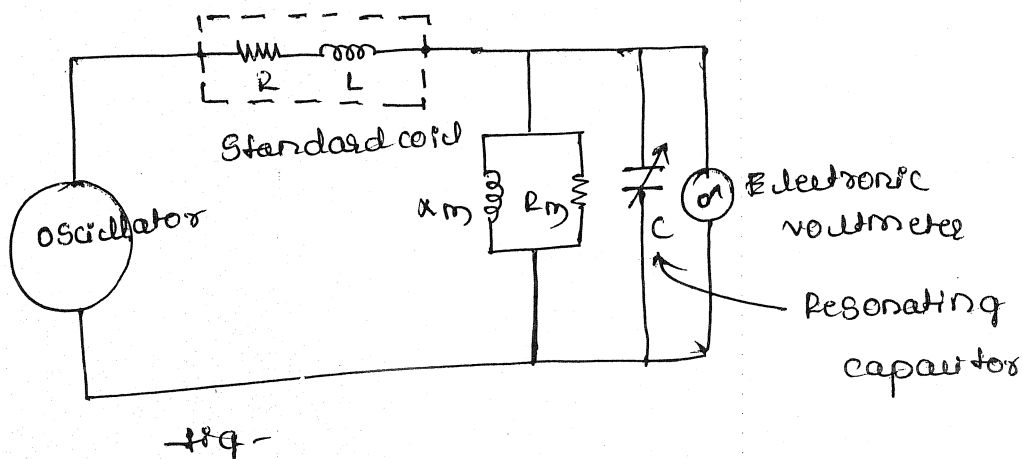 R L
Standard coil
oscillator
Xm
Rm
C
Electronic
voltmeter
Resonating
capacitor
fig-